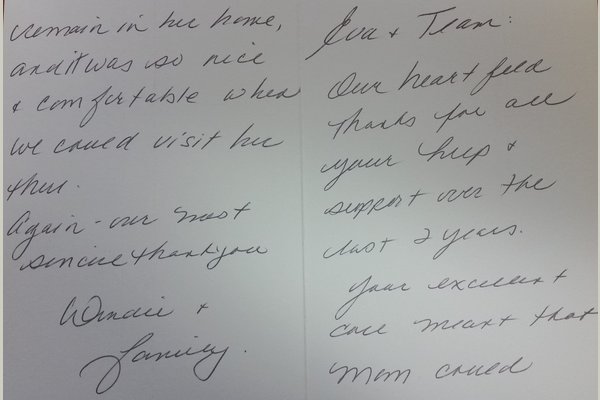 Eva + Team:
Our heart feld
thanks for all
your help +
support over the
last 2 years.
Your excellent
care meant that
Mom could
remain in her home,
and it was so nice
+ comfortable when
we could visit her
there.
Again - our most
sincere thank you
+
family.